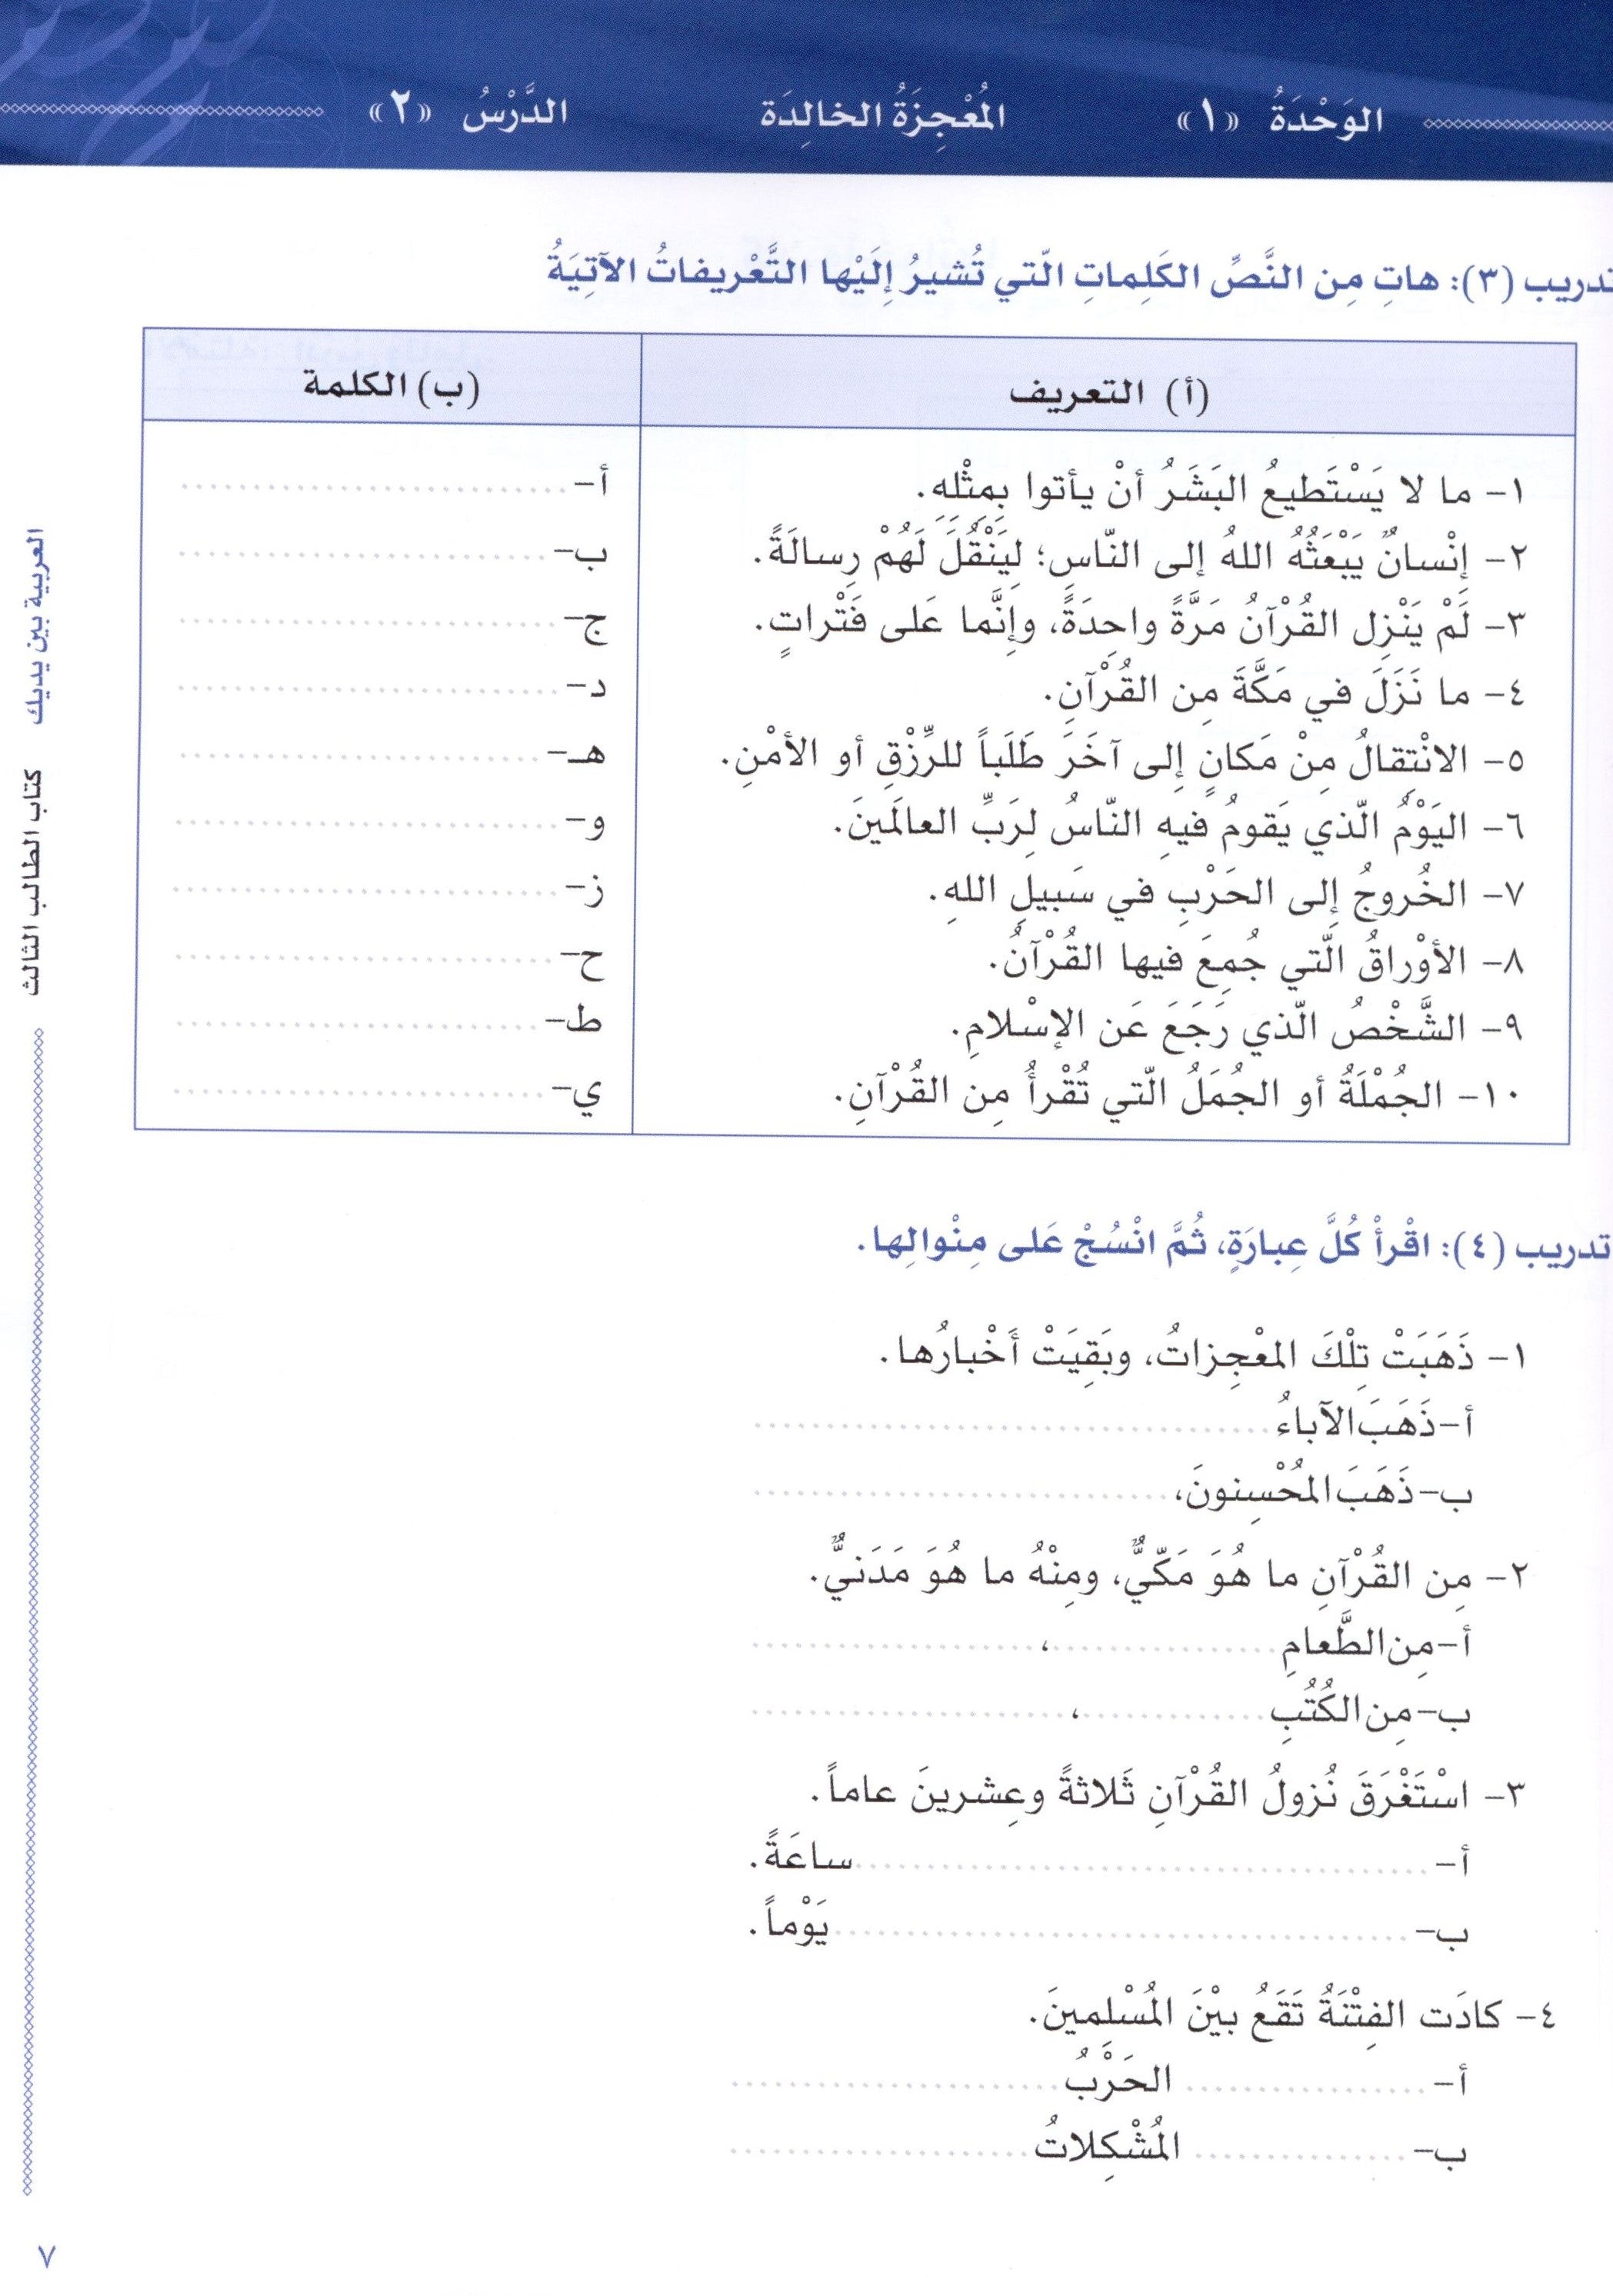 الوَحْدَةُ «١» المُعْجِزَةُ الخالِدَة الدَّرْسُ «٢»
تدريب (٣): هاتِ مِن النَّصِّ الكَلِماتِ الّتي تُشيرُ إِلَيْها التَّعْريفاتُ الآتِيَةُ
(أ) التعريف (ب) الكلمة
١- ما لا يَسْتَطيعُ البَشَرُ أنْ يأتوا بِمِثْلِهِ. أ-
٢- إِنْسانٌ يَبْعَثُهُ اللهُ إلى النّاسِ؛ لِيَنْقُلَ لَهُمْ رِسالَةً. ب-
٣- لَمْ يَنْزِل القُرْآنُ مَرَّةً واحِدَةً، وإِنَّما عَلى فَتْراتٍ. ج-
٤- ما نَزَلَ في مَكَّةَ مِن القُرْآنِ. د-
٥- الانْتِقالُ مِنْ مَكانٍ إِلى آخَرَ طَلَباً للرِّزْقِ أو الأمْنِ. هـ-
٦- اليَوْمُ الّذي يَقومُ فيهِ النّاسُ لِرَبِّ العالَمينَ. و-
٧- الخُروجُ إِلى الحَرْبِ في سَبيلِ اللهِ. ز-
٨- الأوْراقُ الّتي جُمِعَ فيها القُرْآنُ. ح-
٩- الشَّخْصُ الّذي رَجَعَ عَن الإسْلامِ. ط-
١٠- الجُمْلَةُ أو الجُمَلُ الّتي تُقْرأُ مِن القُرْآنِ. ي-
تدريب (٤): اقْرأْ كُلَّ عِبارَةٍ، ثُمَّ انْسُجْ عَلى مِنْوالِها.
١- ذَهَبَتْ تِلْكَ المعْجِزاتُ، وبَقِيَتْ أَخْبارُها.
أ- ذَهَبَ الآباءُ
ب- ذَهَبَ المُحْسِنونَ،
٢- مِن القُرْآنِ ما هُوَ مَكّيٌّ، ومِنْهُ ما هُوَ مَدَنيٌّ.
أ- مِن الطَّعامِ ،
ب- مِن الكُتُبِ ،
٣- اسْتَغْرَقَ نُزولُ القُرْآنِ ثَلاثةً وعِشرينَ عاماً.
أ- ساعَةً.
ب- يَوْماً.
٤- كادَت الفِتْنَةُ تَقَعُ بيْنَ المُسْلِمينَ.
أ- الحَرْبُ
ب- المُشْكِلاتُ
العربية بين يديك كتاب الطالب الثالث
٧